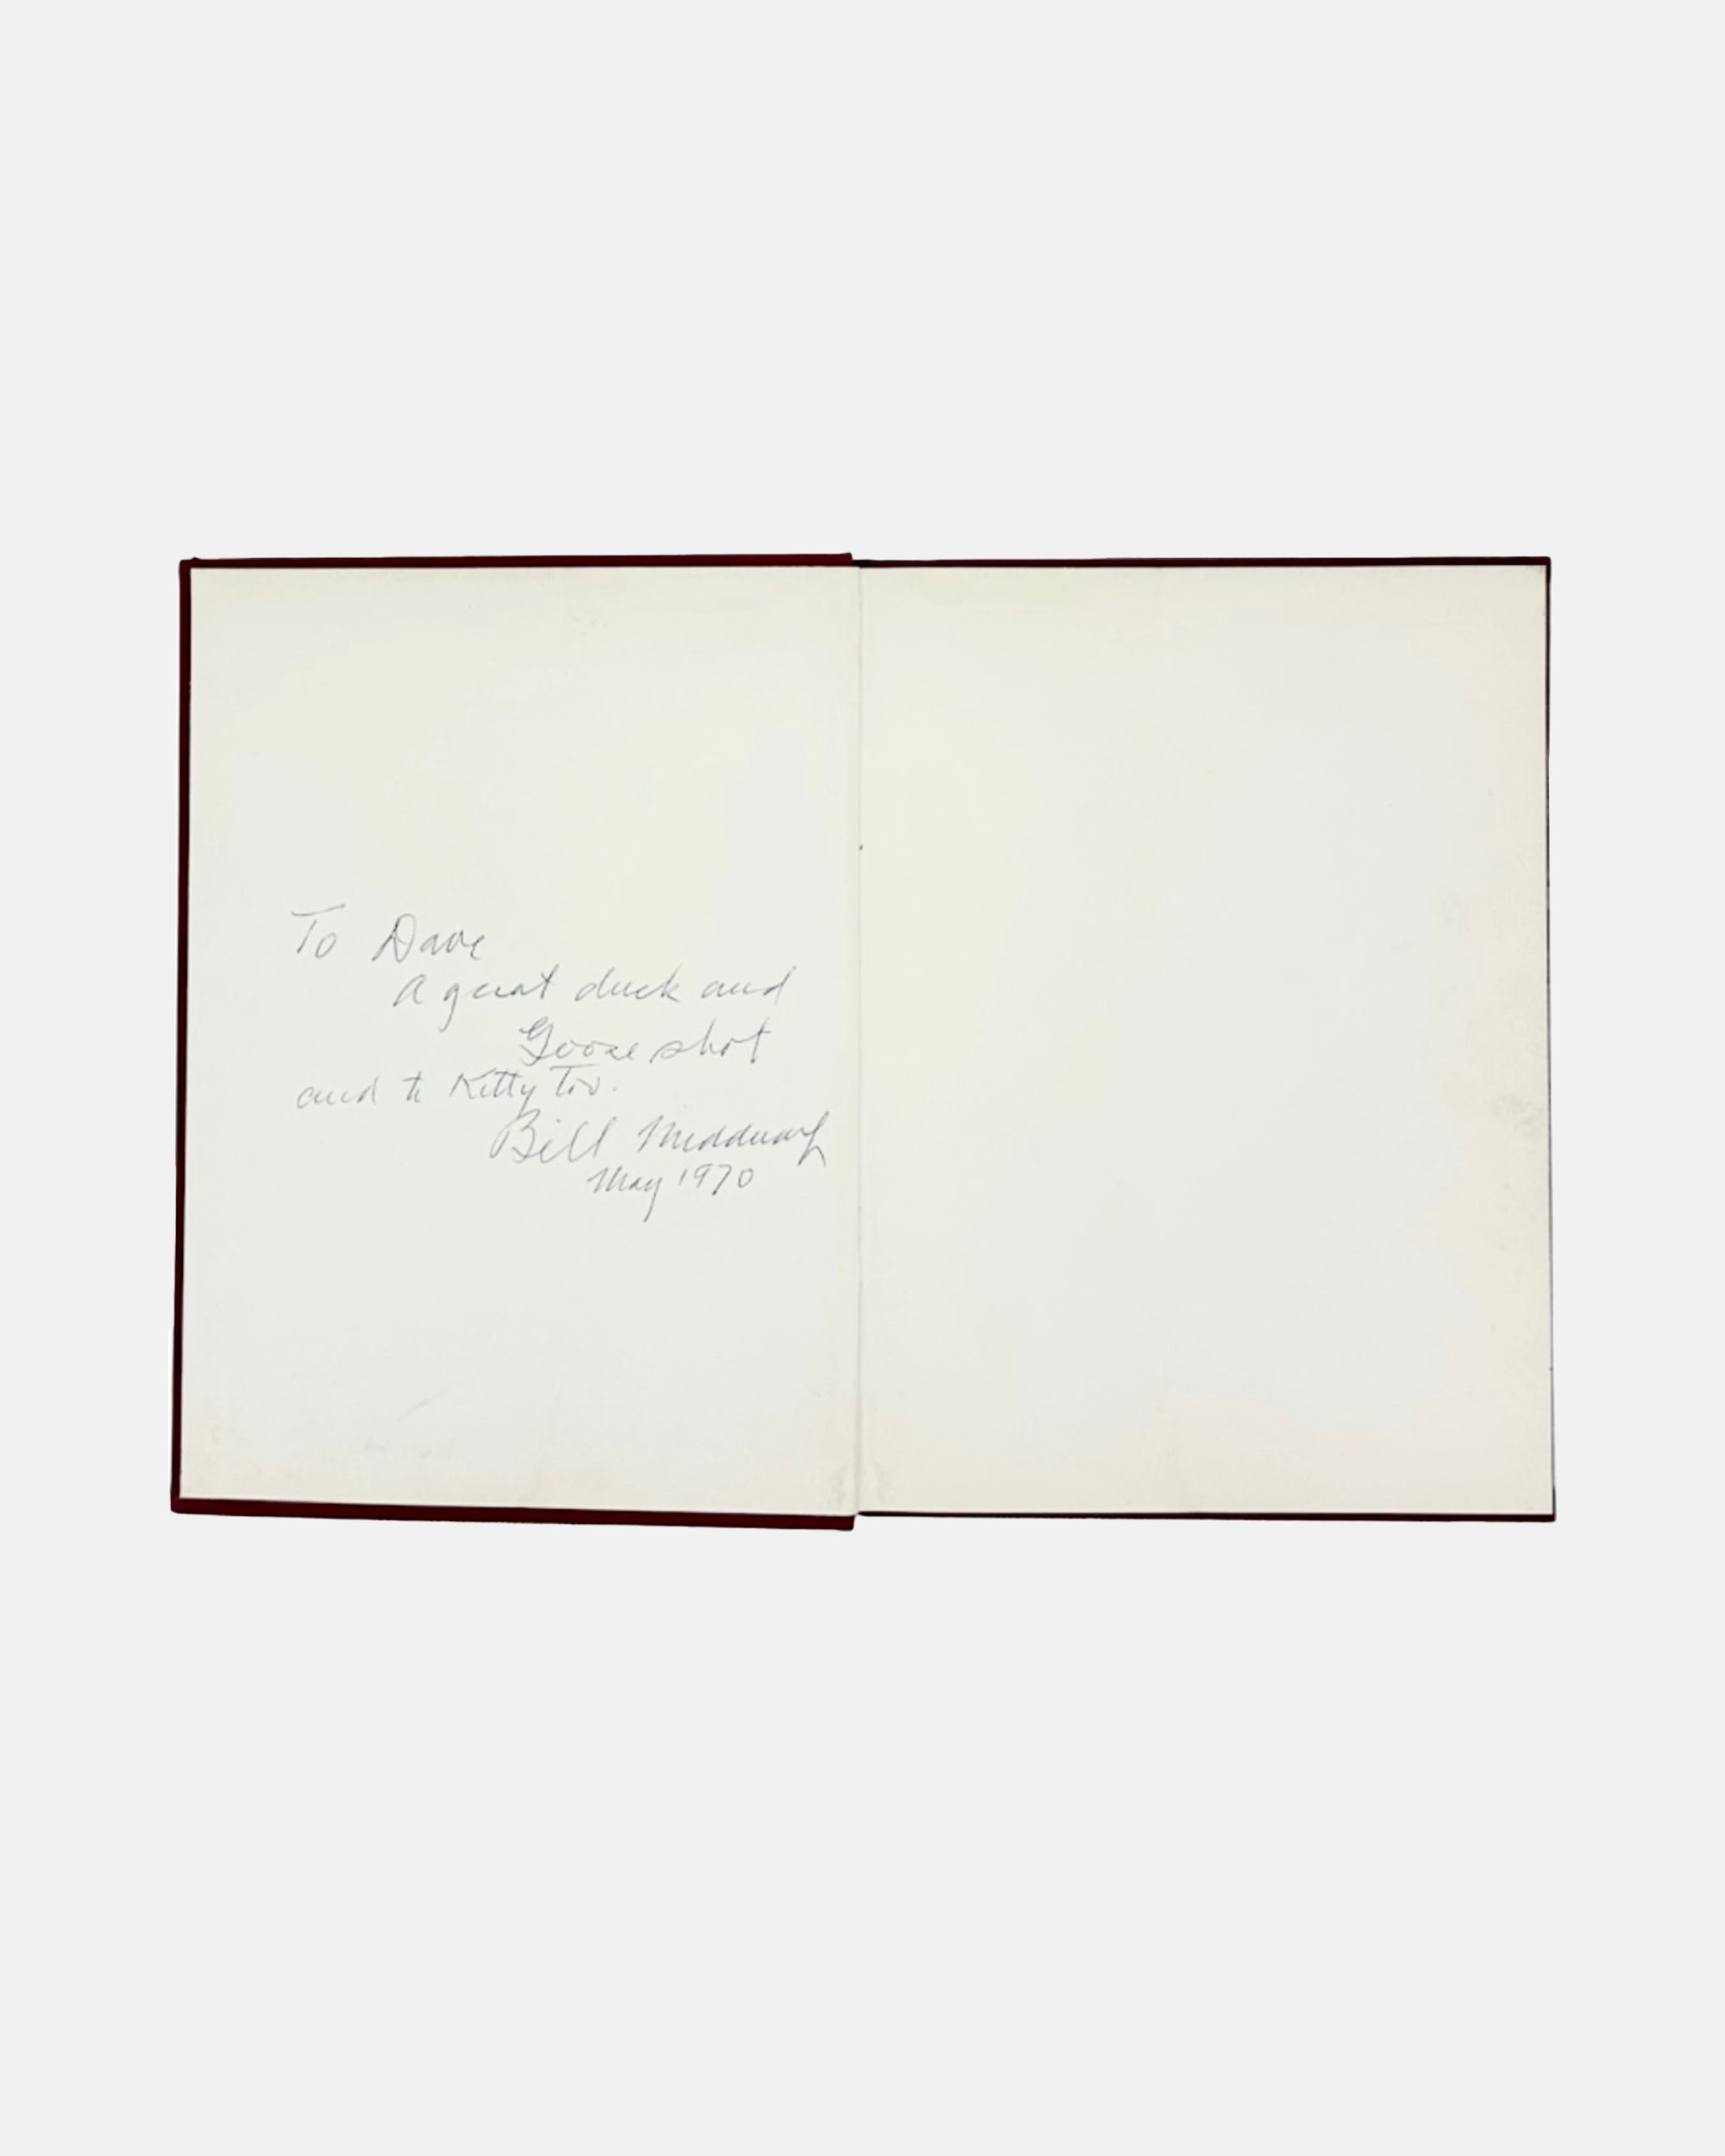 To Dave
A great duck and
Goose shot
and to Kitty Too.
Bill
May 1970